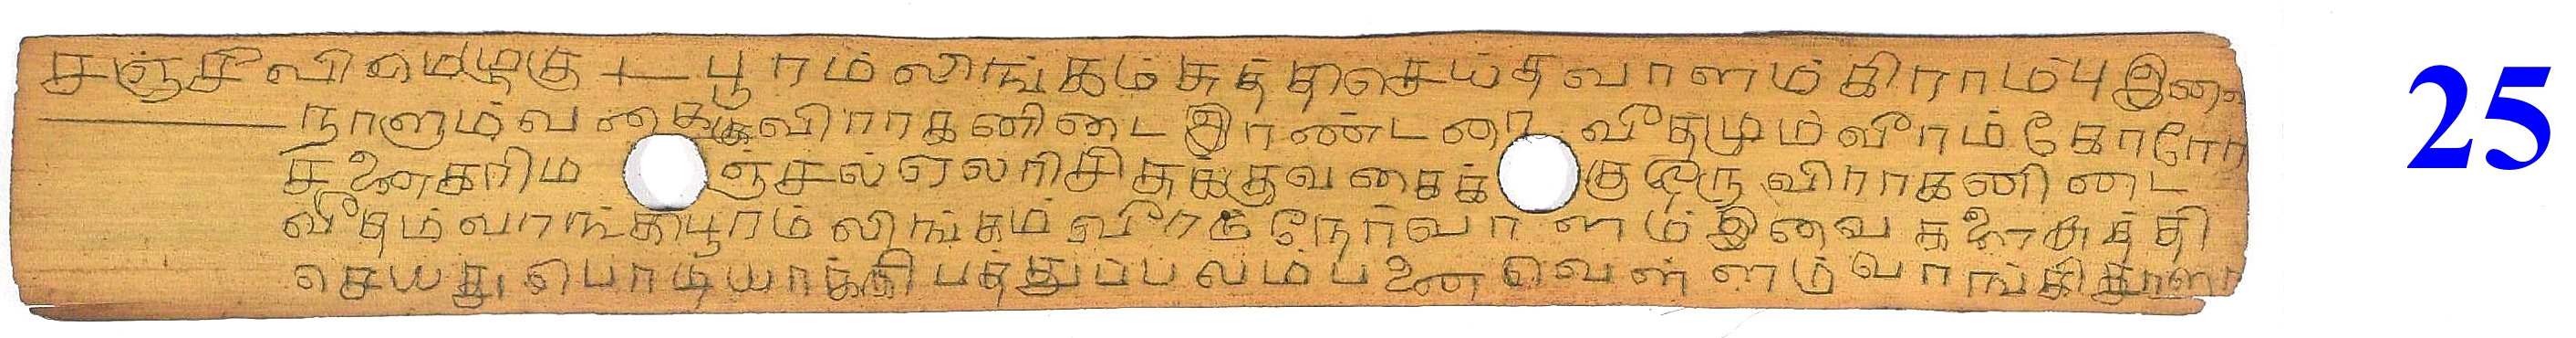 சஞ்சீவிமெழுகு + பூரம் லிங்கம் சுத்திசெய்தவாளம் கிராம்பு இவை
நாளும் வகைக்கு விராகனிடை இரண்டரை வீதமும் வீரம் கோரோ
சனை கரிம ஞ்சல் ஏலரிசி துக்குவகைக் கு ஒரு விராகனிடை
வீதம் வாங்கி பூரம் லிங்கம் வீரம் நேர்வாளம் இவைகளை சுத்தி
செயது பொடியாக்கி பத்துப்பலம் பனை வெள்ளம் வாங்கி தூளா
25